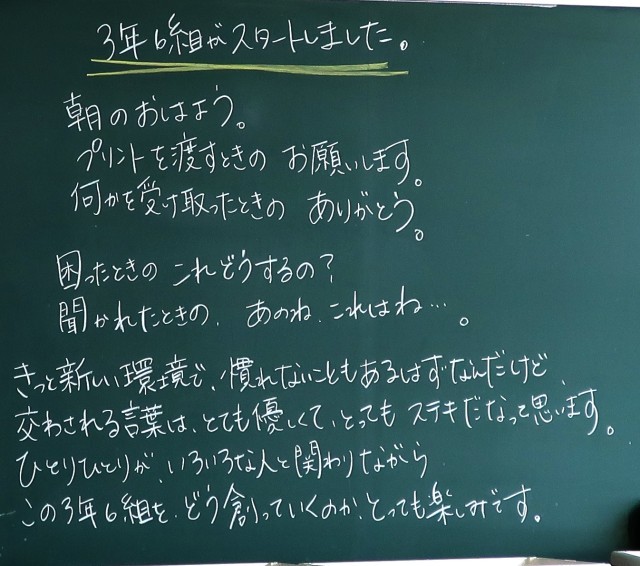 3年6組がスタートしました。
朝のおはよう。
プリントを渡すときの お願いします。
何かを受け取ったときの ありがとう。
困ったときの これどうするの?
聞かれたときの、あのね、これはね…。
きっと新しい環境で、慣れないこともあるはずなんだけど、
交わされる言葉は、とても優しくて、とっても ステキだなって思います。
ひとりひとりが、いろいろな人と関わりながら
この3年6組を、どう創っていくのか、とっても楽しみです。